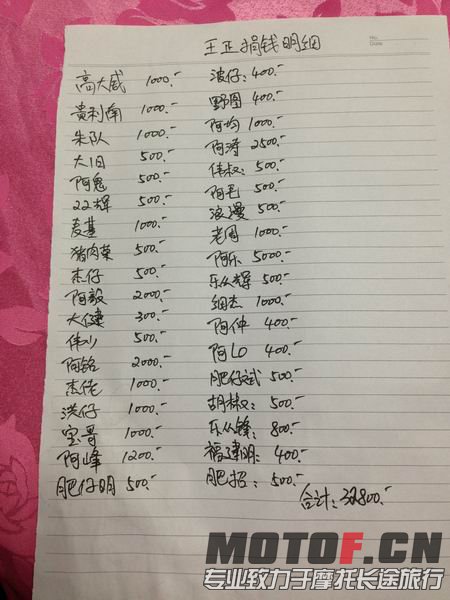 No.
Date
王正捐钱明细
高大威 1000.-
贵利南 1000.-
朱队 1000.-
大旧 500.-
阿鬼 500.-
22辉 500.-
麦基 1000.-
猪肉荣 500.-
杰仔 500.-
阿毅 2000.-
大健 300.-
伟业 500.-
阿铭 2000.-
杰佬 1000.-
洪仔 1000.-
宝哥 1000.-
阿峰 1200.-
肥仔明 500.-
波仔: 400.-
野图 400.-
阿均 1000.-
阿涛 2500.-
伟叔: 500.-
阿毛 500.-
浪漫 500.-
老周 1000.-
阿乐 5000.-
乐从辉 500.-
细杰 1000.-
阿仲 400.-
阿LO 400.-
肥仔斌 500.-
胡椒: 500.-
乐从锋: 800.-
福建明: 400.-
肥招: 500.-
合计: 32800.-
MOTOF.CN
专业致力于摩托长途旅行